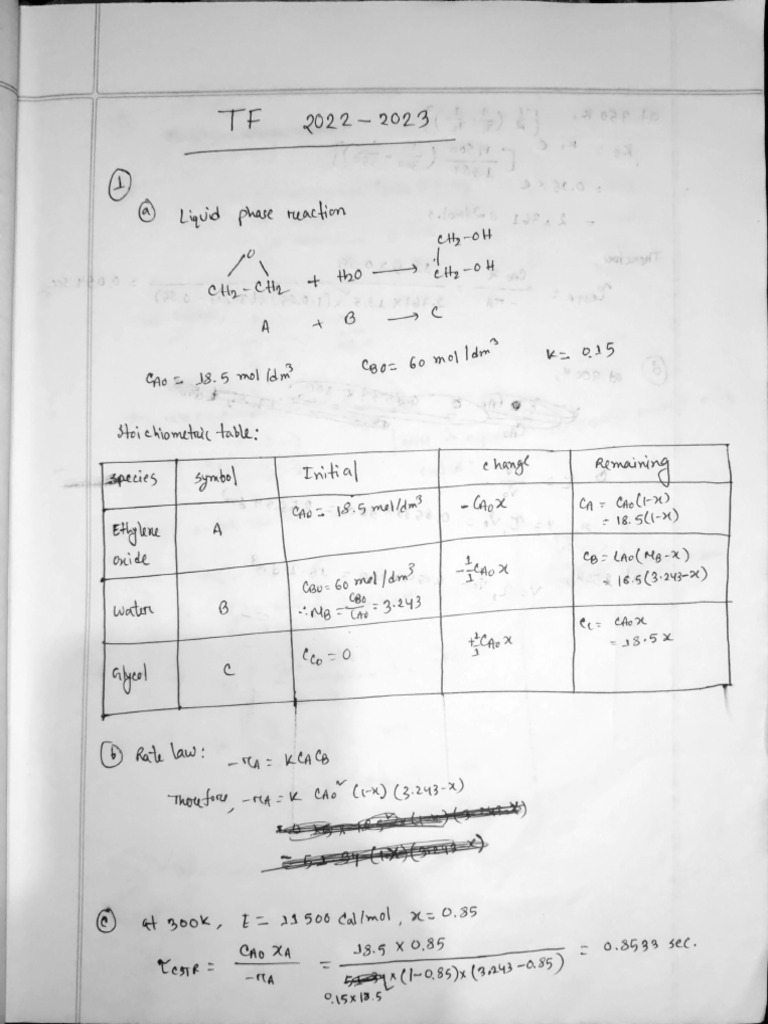 TF 2022-2023
①
ⓐ Liquid phase reaction
CH2-OH
O
CH2-CH2 + H2O → CH2-OH
A + B → C
CA0 = 18.5 mol/dm³ CB0 = 60 mol/dm³ K = 0.15
Stoichiometric table:
Species Symbol Initial Change Remaining
Ethylene oxide A CA0 = 18.5 mol/dm³ -CA0X CA = CA0(1-x) = 18.5(1-x)
Water B CB0 = 60 mol/dm³ ∴MB = CB0/CA0 = 3.243 -1/1 CA0X CB = CA0(MB-x) = 18.5(3.243-x)
Glycol C CC0 = 0 +1/1 CA0X CC = CA0X = 18.5x
ⓑ Rate law: -rA = KCACB
Therefore, -rA = K CA0² (1-x) (3.243-x)
ⓒ at 300K, E = 11500 Cal/mol, x = 0.85
τCSTR = CA0 XA / -rA = 18.5 × 0.85 / 0.15×18.5 × (1-0.85)×(3.243-0.85) = 0.8533 sec.